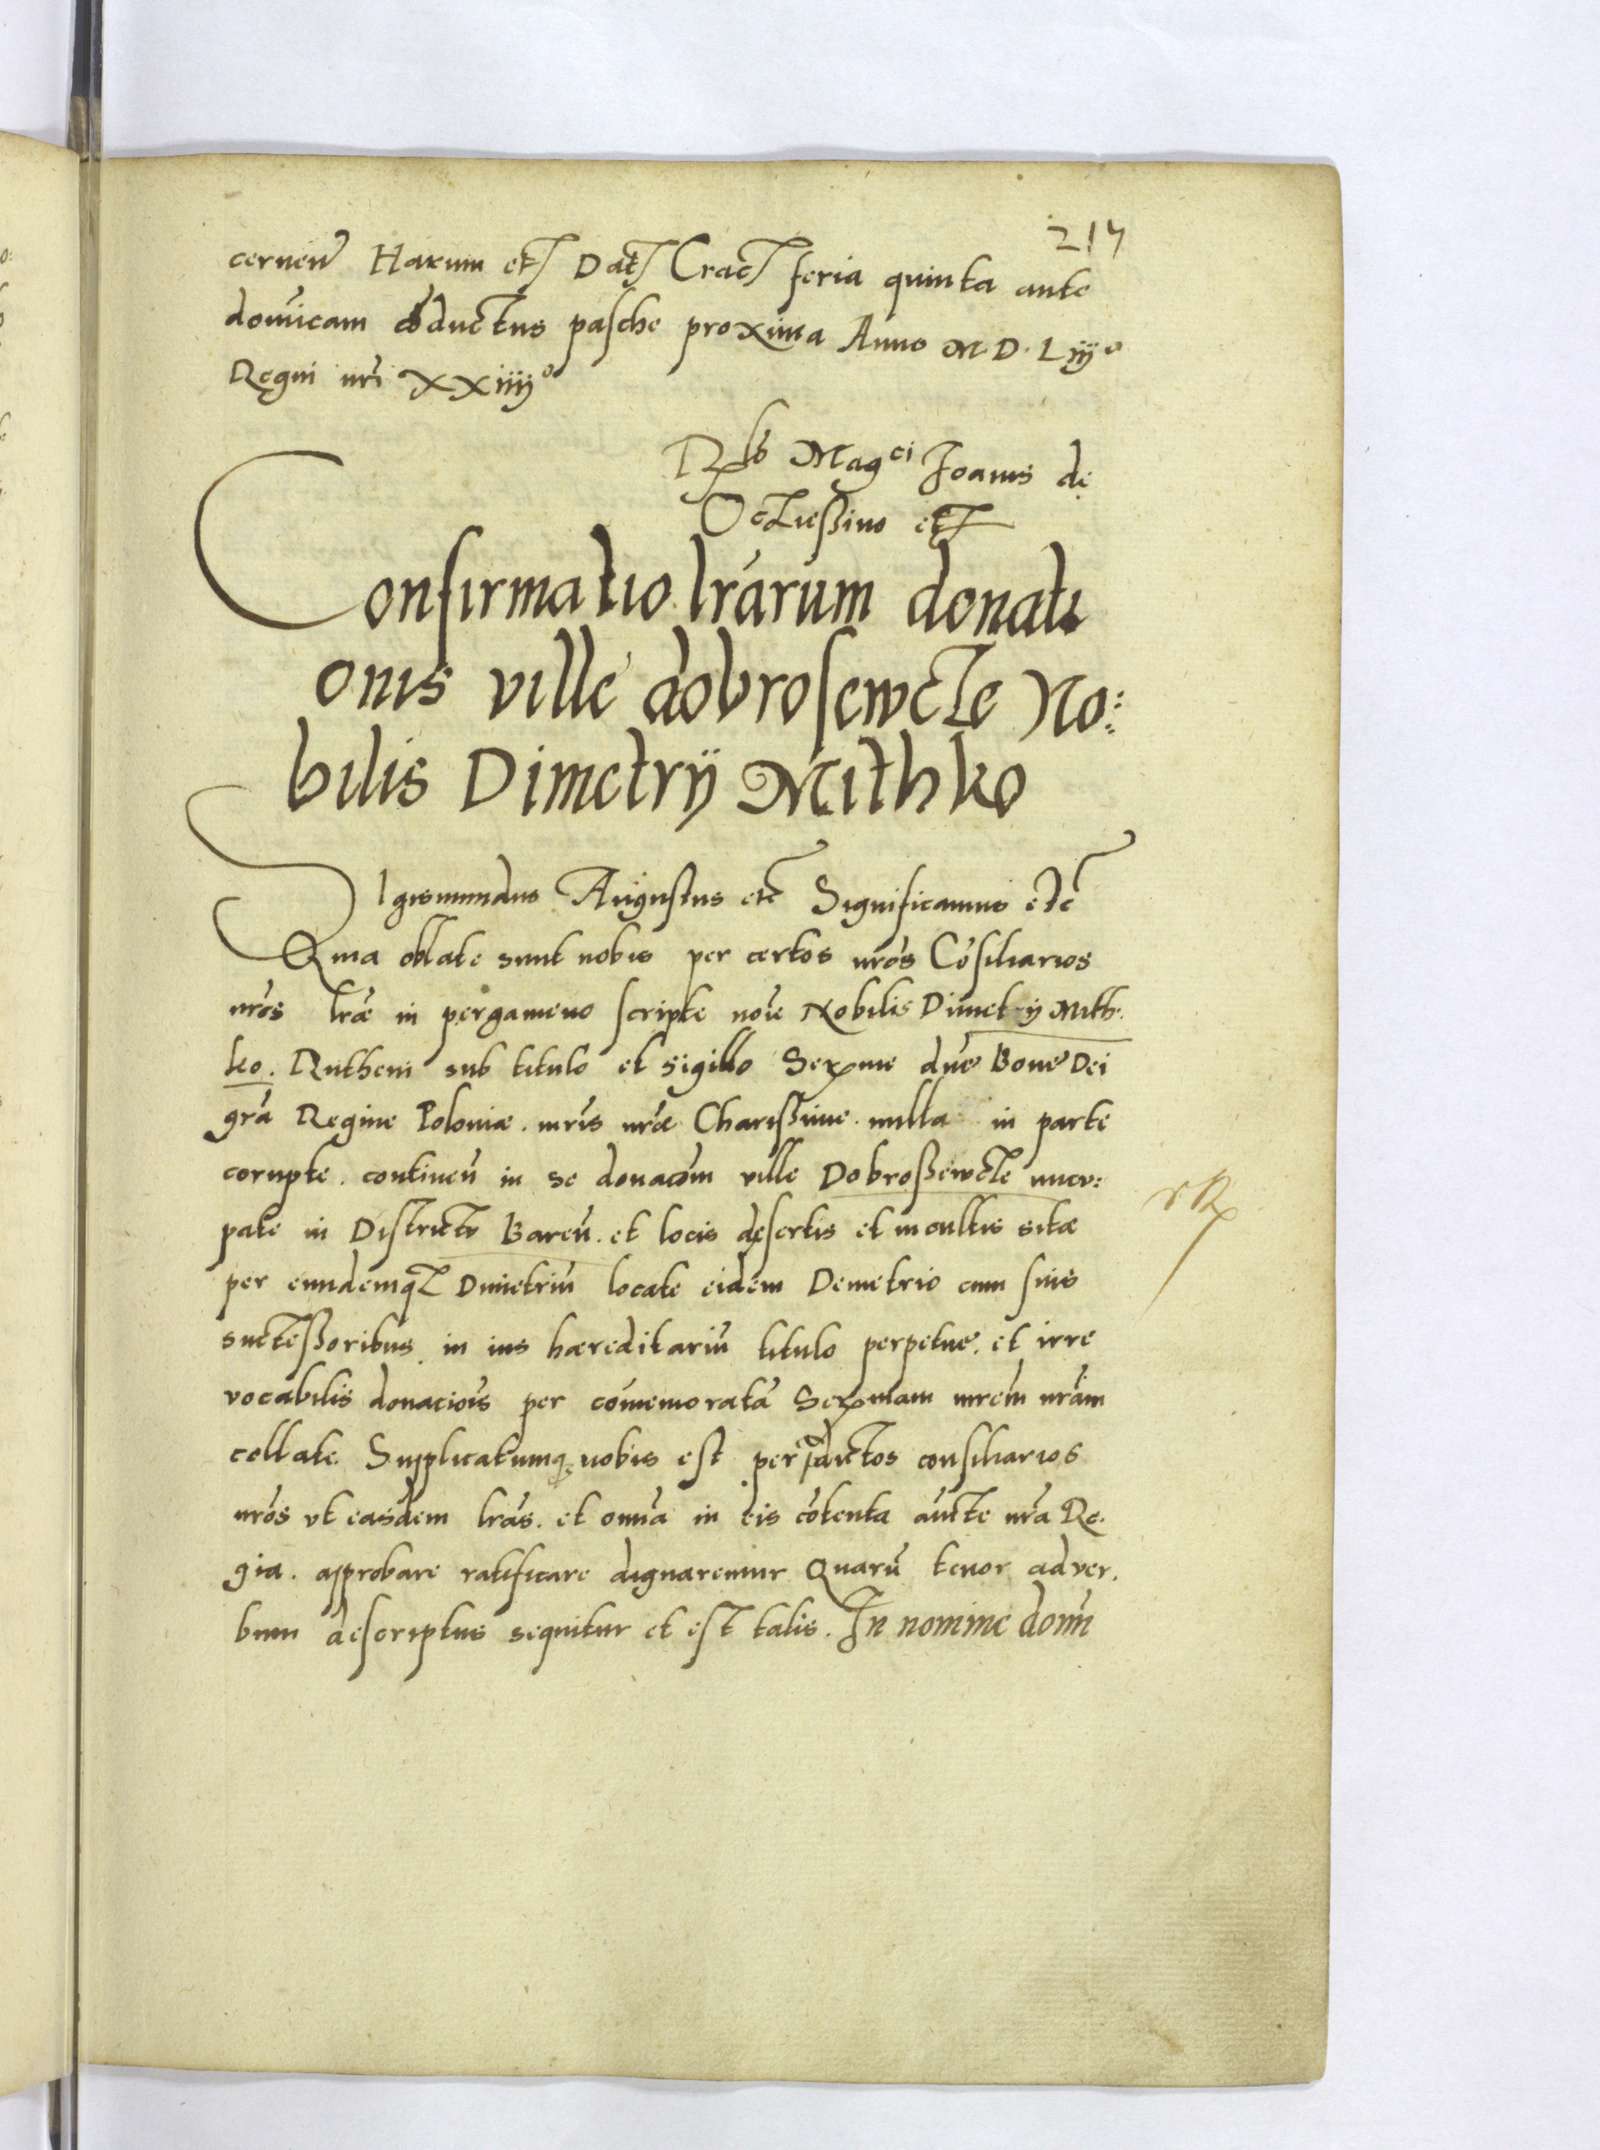 214
cernen̄ Harum etc Dat Crac feria quinta ante
domīcam cōductus pasche proxima Anno M.D.Liijº
Regni nrī XXiiijº
Rel̄o Magci Joanis de
Oczieschino etc
Confirmatio lrārum donati
onis ville dobrosewcze No:
bilis Dimetrij Mithko
Sigismundus Augustus etc̄ Significamus etc̄
Quia oblate sunt nobis per certos nrōs Cōsiliarios
nrōs lrāe in pergameno scripte noīe Nobilis Dimetrij Mith.
ko. Rutheni sub titulo et sigillo Sermae dnē Bone Dei
grā Regine Poloniae. mrīs nrāe Charissime. nulla in parte
corupte. continen̄ in se donacōm ville Dobrossewcze nucu:
pate in Districtu Baren̄. et locis desertis et incultis sitae
per eundemq Dimetriū locate eidem Demetrio cum suis
suctessoribus in ius haereditariū titulo perpetue. et irre
vocabilis donaciois per cōmemoratā Sermam mrēm nrām
collate. Supplicatumq nobis est per pdictos consiliarios
nrōs vt easdem lrās. et omīa in eis cōtenta aucte nrā Re.
gia. approbare ratificare dignaremur Quarū tenor ad ver.
bum descriptus sequitur et est talis. In nomine domī